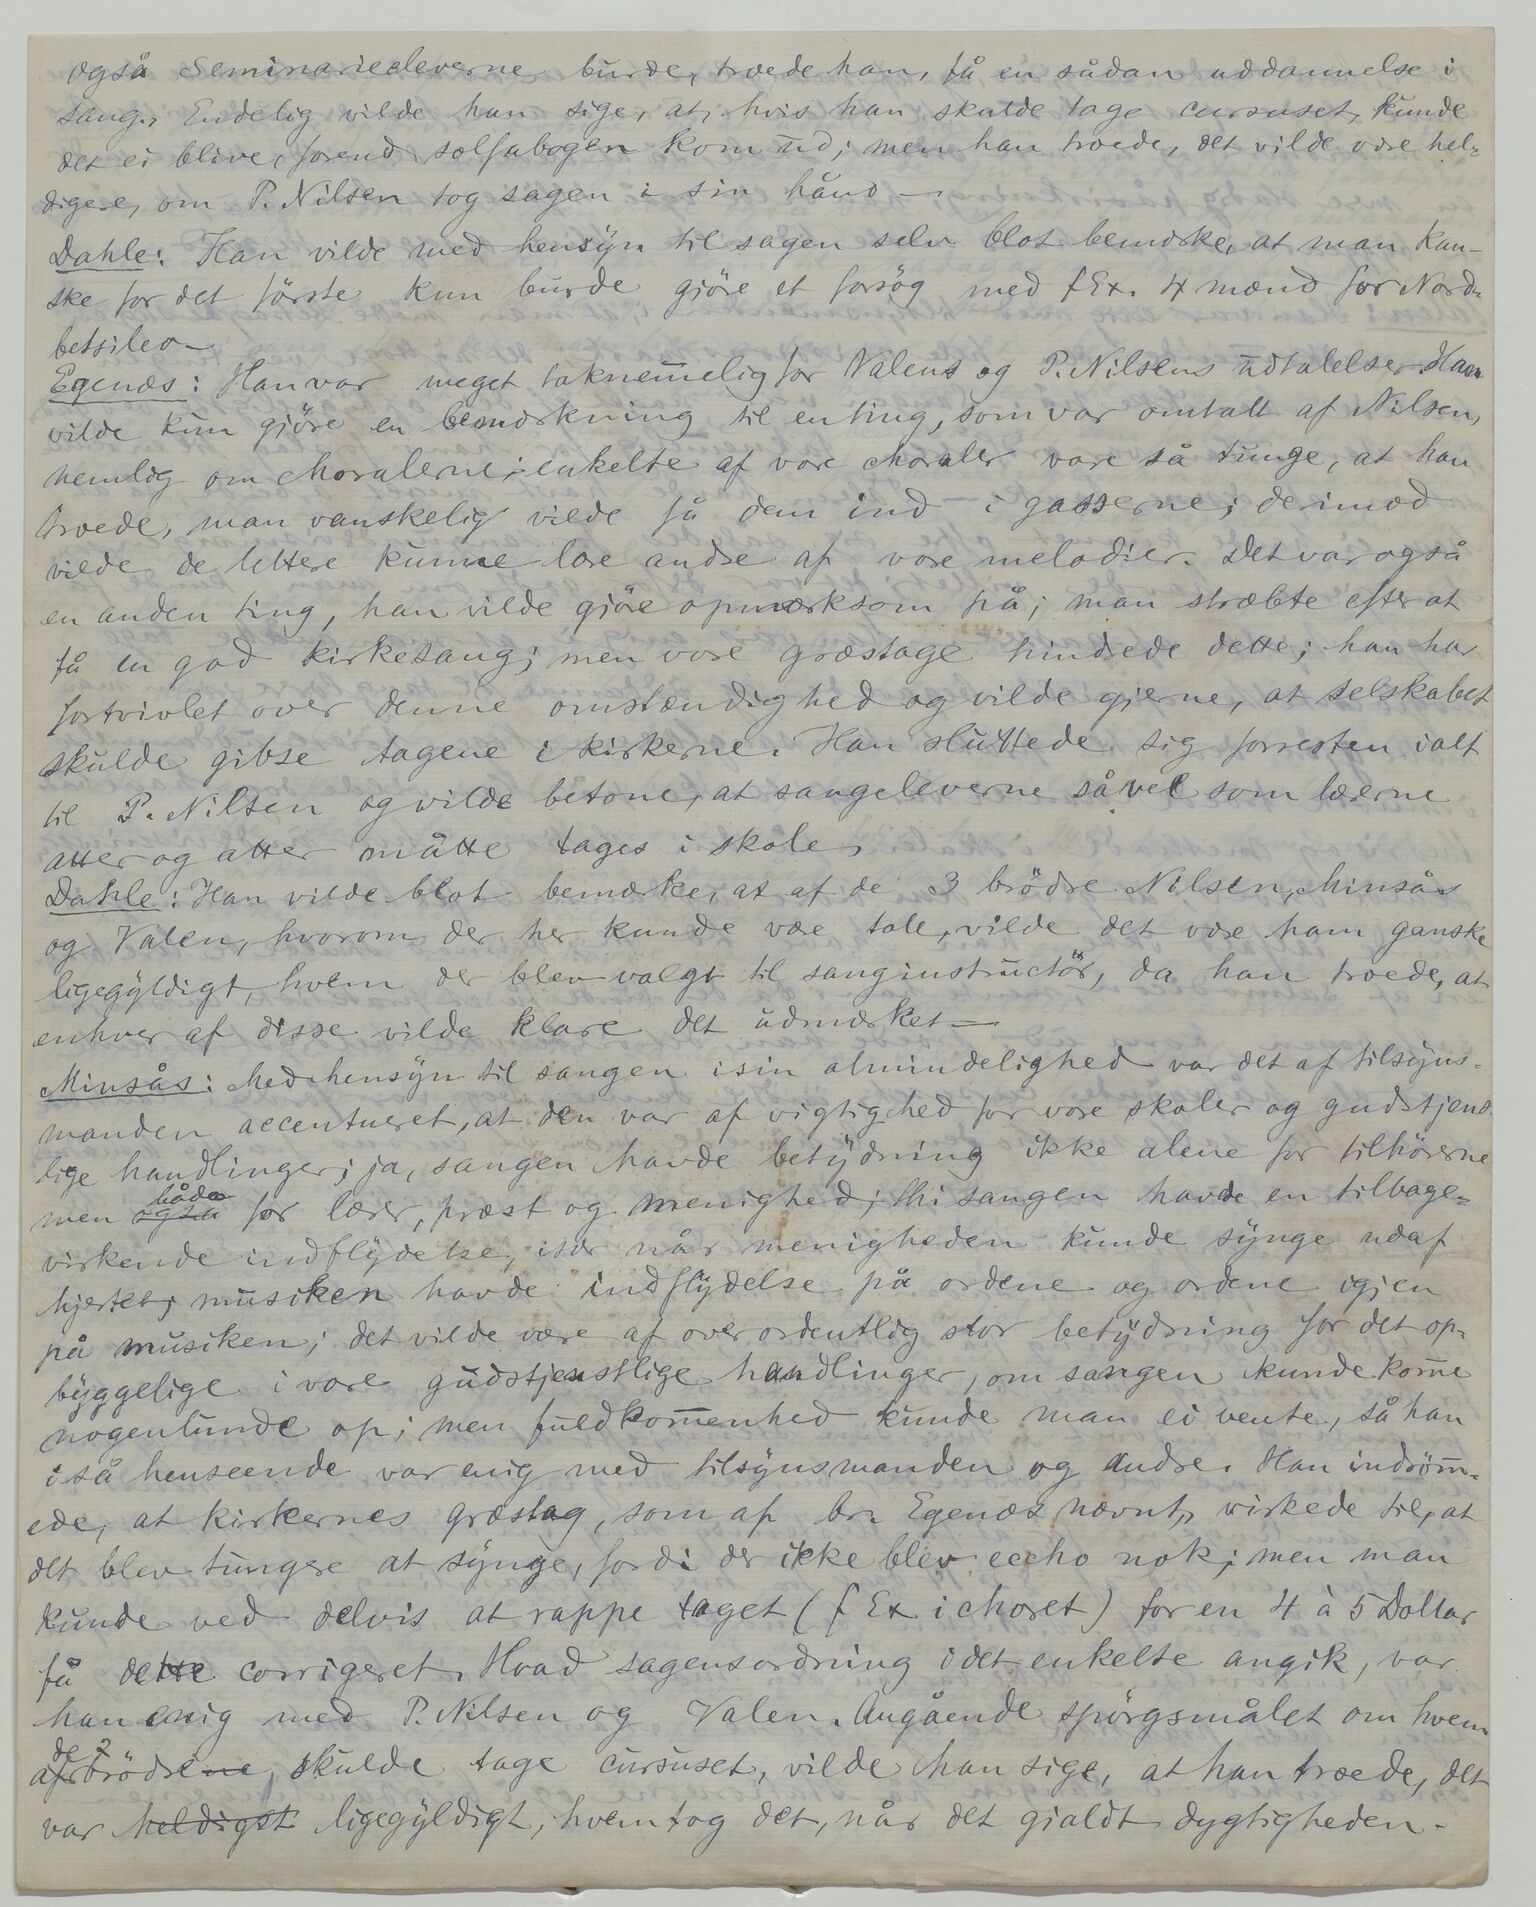 også Seminarieeleverne burde, troede han, få en sådan uddannelse i
sang. Endelig vilde han sige, at, hvis han skulde tage cursuset, kunde
det ei blive, forend solfabogen kom ud; men han troede, det vilde være hel-
digere, om P. Nilsen tog sagen i sin hånd —
Dahle: Han vilde med hensyn til sagen selv blot bemærke, at man kan-
ske for det første kun burde gjöre et forsög med f Ex. 4 mænd for Nord-
betsileo —
Egenæs: Han var meget taknem̅elig for Valens og P. Nilsens udtalelser. Han
vilde kun gjöre en bemærkning til en ting, som var omtalt af Nilsen,
nemlig om choralerne; enkelte af vore choraler vare så tunge, at han
troede, man vanskelig vilde få dem ind i gasserne; derimod
vilde de lettere kunne lære andre af vore melodier. Det var også
en anden ting, han vilde gjöre opmærksom på; man stræbte efter at
få en god kirkesang; men vore græstage hindrede dette; han har
fortvivlet over denne omstændighed og vilde gjerne, at selskabet
skulde gibse tagene i kirkerne. Han sluttede sig forresten ialt
til P. Nilsen og vilde betone, at sangeleverne såvel som lærerne
atter og atter måtte tages i skole.
Dahle: Han vilde blot bemærke, at af de 3 brödre Nilsen, Minsås
og Valen, hvorom der her kunde være tale, vilde det være ham ganske
ligegyldigt, hvem der blev valgt til sanginstructör, da han troede, at
enhver af disse vilde klare det udmærket —
Minsås: Med hensyn til sangen i sin almindelighed var det af tilsyns-
manden accentueret, at den var af vigtighed for vore skoler og gudstjenst-
lige handlinger; ja, sangen havde betydning ikke alene for tilhörerne
men også både for lærer, præst og menighed; thi sangen havde en tilbage-
virkende indflydelse, især når menigheden kunde synge udaf
hjertet; musiken havde indflydelse på ordene og ordene igjen
på musiken; det vilde være af overordentlig stor betydning for det op-
byggelige i vore gudstjenstlige handlinger, om sangen kunde kom̅e
nogenlunde op; men fuldkom̅enhed kunde man ei vente, så han
i så henseende var enig med tilsynsmanden og andre. Han indröm̅-
ede, at kirkernes græstag, som af br. Egenæs nævnt, virkede til, at
det blev tungere at synge, fordi der ikke blev eccho nok; men man
kunde ved delvis at rappe taget (f Ex i choret) for en 4 à 5 Dollar
få dette corrigeret. Hvad sagensordning i det enkelte angik, var
han enig med P. Nilsen og Valen. Angående spörgsmålet om hvem
af de 2 brödrene, skulde tage cursuset, vilde han sige, at han troede, det
var heldigst ligegyldigt, hvem tog det, når det gjaldt dygtigheden.